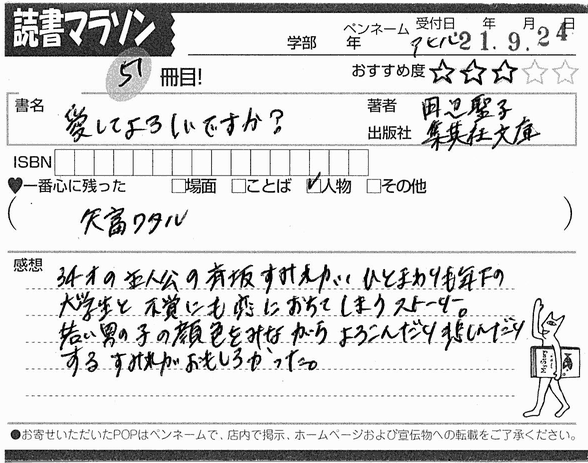 読書マラソン
学部 年 ペンネーム アヒル 受付日 年 月 日
21.9.24
51 冊目!
おすすめ度 ★★★☆☆
書名 愛してよろしいですか?
著者 田辺聖子
出版社 集英社文庫
ISBN
♥一番心に残った □場面 □ことば ☑人物 □その他
( 矢富ワタル )
感想
34才の主人公の斉坂すみれが、ひとまわりも年下の
大学生と不覚にも恋におちてしまうストーリー。
若い男の子の顔色をみながらよろこんだり悲しんだり
するすみれがおもしろかった。
●お寄せいただいたPOPはペンネームで、店内で掲示、ホームページおよび宣伝物への転載をご了承ください。